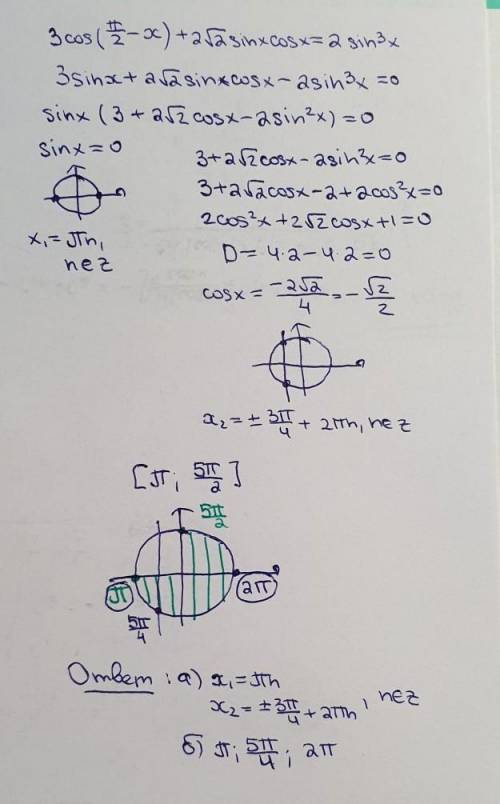 3cos(π/2 − x) + 2√2 sinx cosx = 2 sin³x
3sinx + 2√2 sinx cosx − 2sin³x = 0
sinx (3 + 2√2 cosx − 2sin²x) = 0
sinx = 0
x₁ = πn,
n∈Z
3 + 2√2 cosx − 2sin²x = 0
3 + 2√2 cosx − 2 + 2cos²x = 0
2cos²x + 2√2 cosx + 1 = 0
D = 4·2 − 4·2 = 0
cosx = −2√2/4 = −√2/2
x₂ = ± 3π/4 + 2πn, n∈Z
[π; 5π/2]
5π/2
π
2π
5π/4
Ответ: а) x₁ = πn
x₂ = ± 3π/4 + 2πn, n∈Z
б) π; 5π/4; 2π